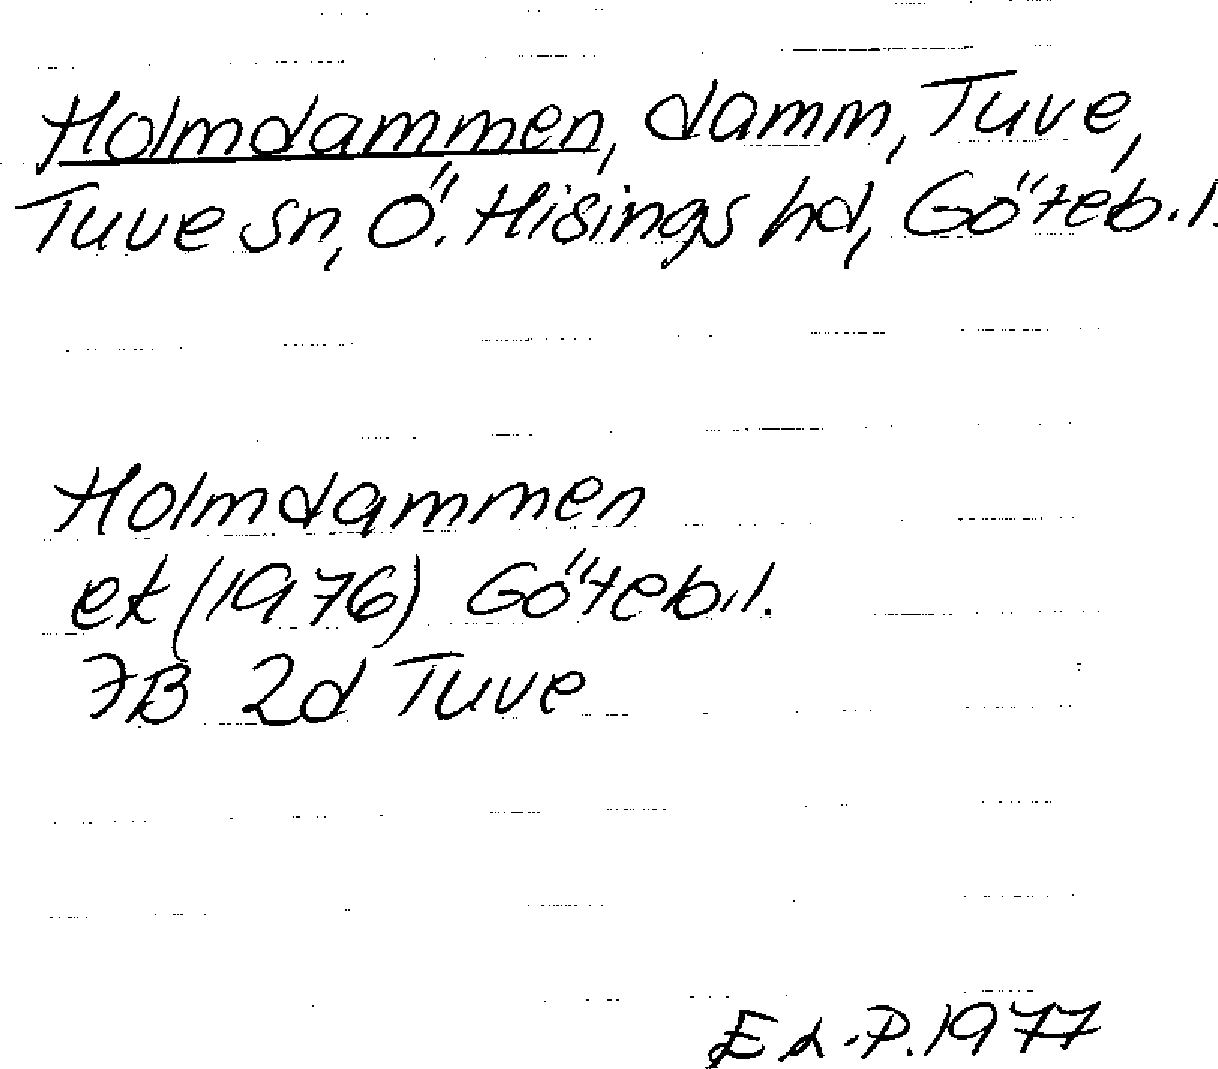 Holmdammen, damm, Tuve,
Tuve sn, Ö. Hisings hd, Göteb.l.
Holmdammen
ek (1976) Göteb.l.
7B 2d Tuve
Ed.-P. 1977